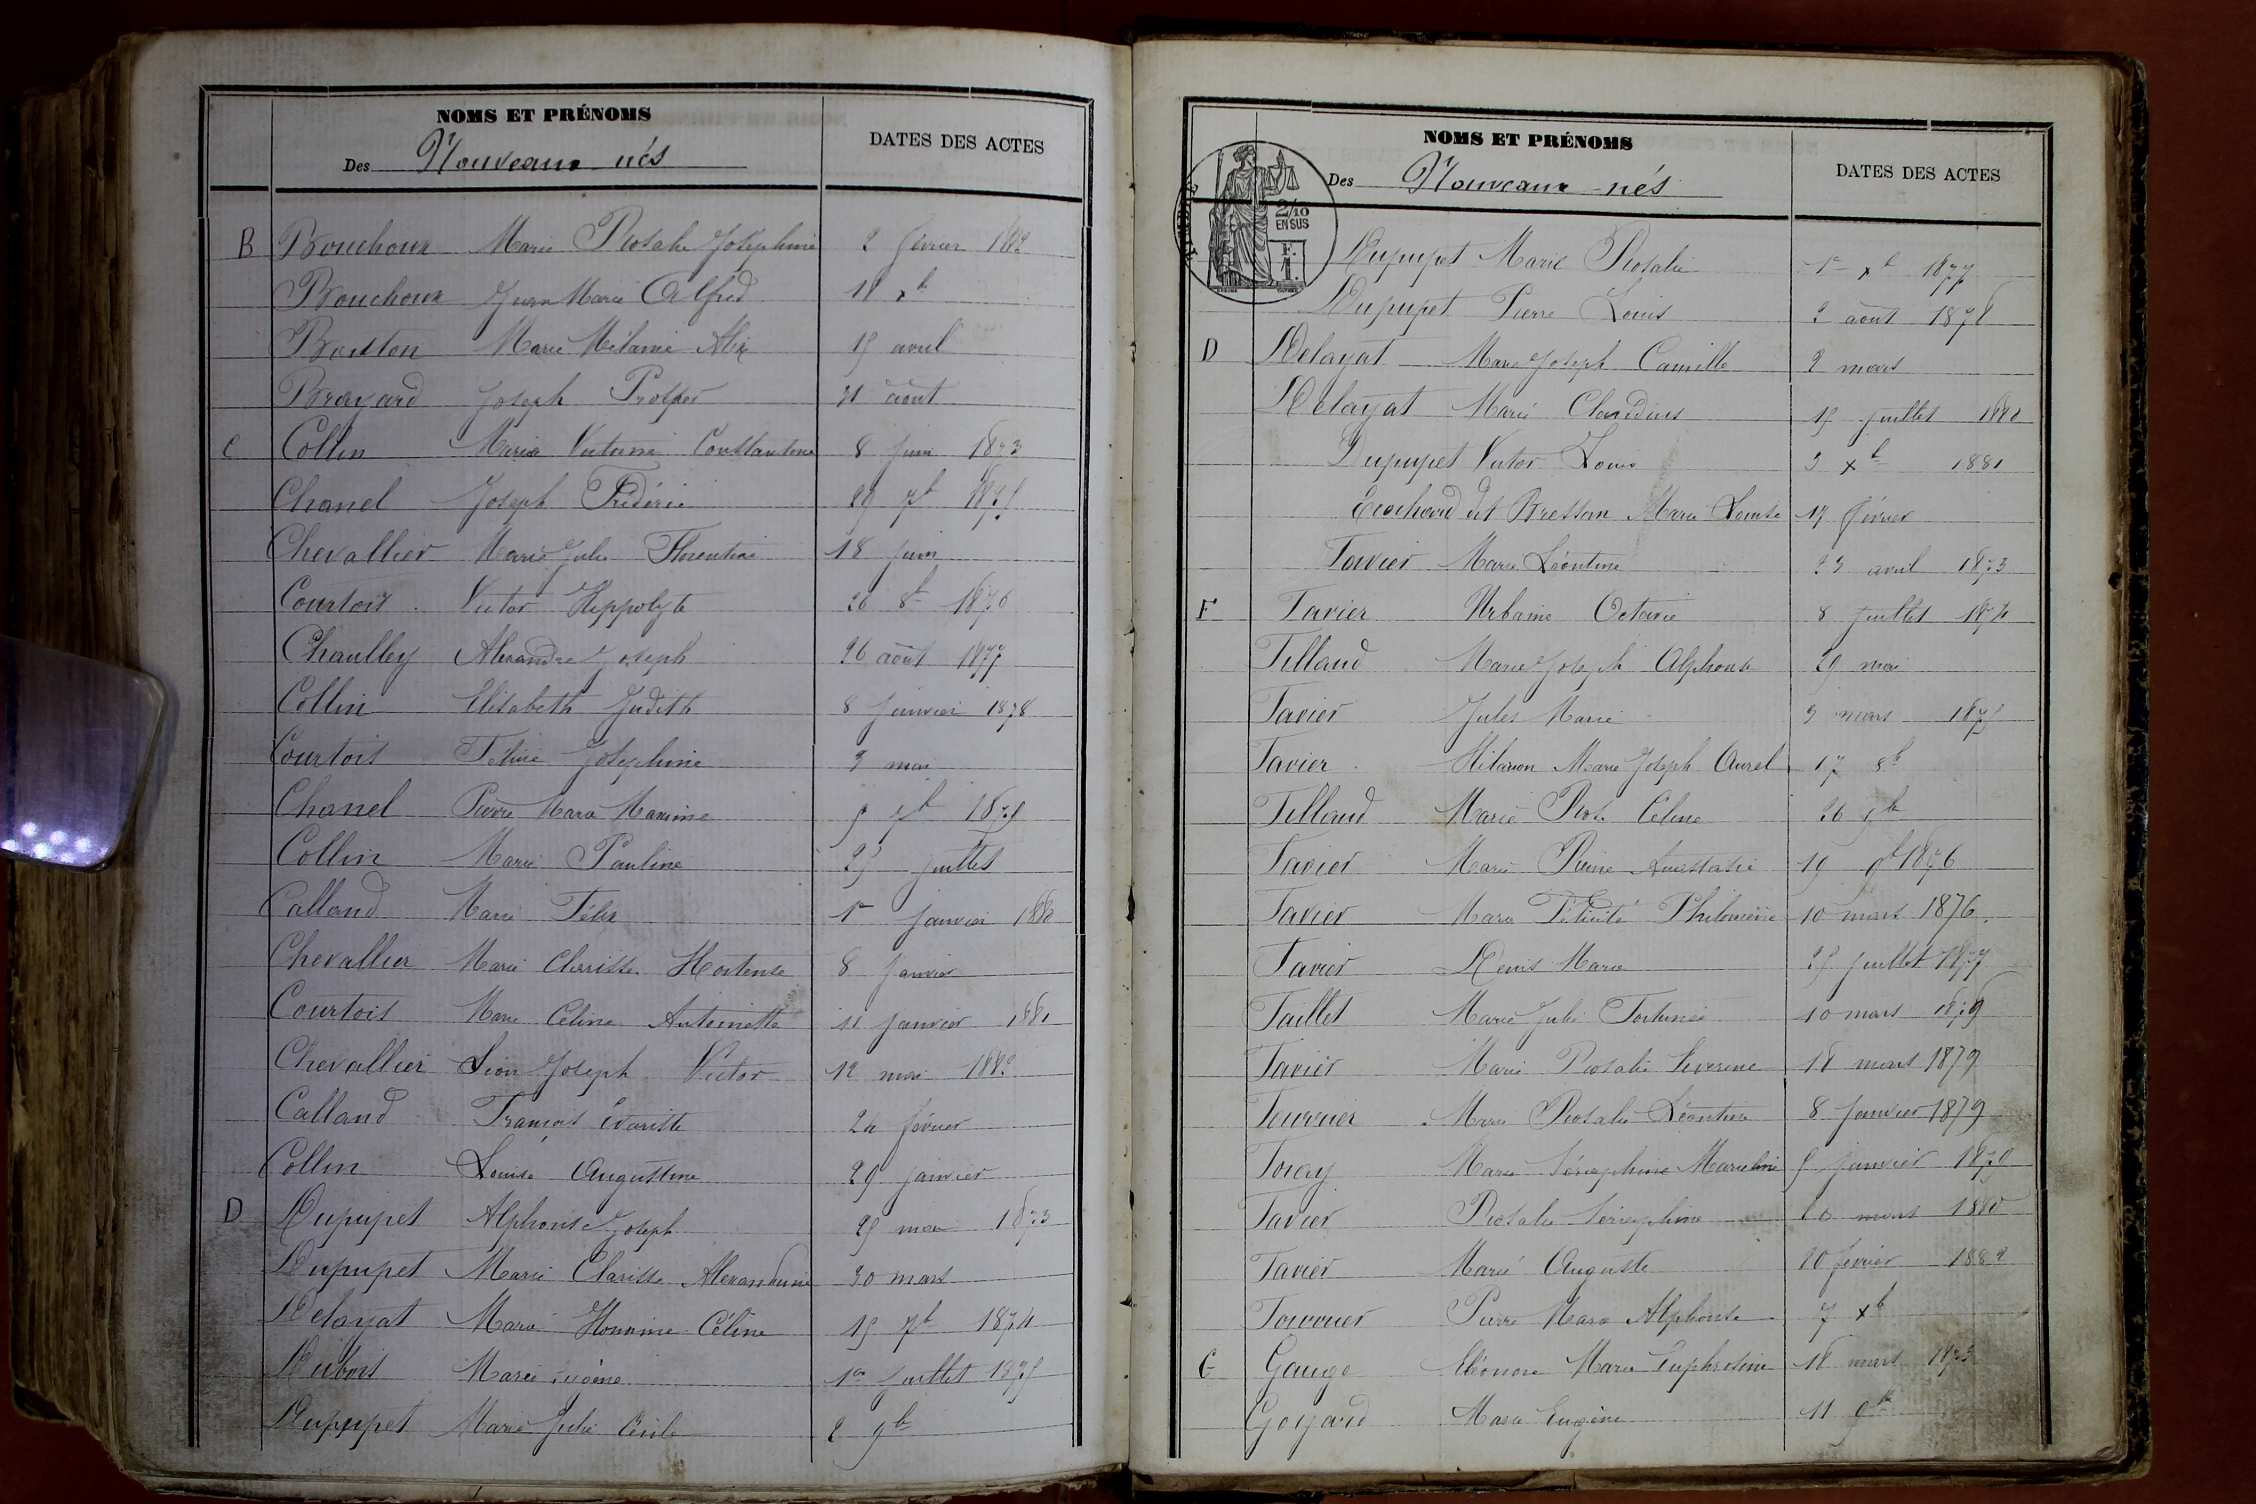 NOMS ET PRÉNOMS
Des Nouveaux nés
DATES DES ACTES
B Bouchoux Marie Rosalie Joséphine 2 février 1882
Bouchoux Jean Marie Alfred 18 xb
Boisson Marie Mélanie Alix 15 avril
Brayard Joseph Prosper 31 août
C Collin Maria Victorine Constantine 8 juin 1873
Chanel Joseph Frédéric 29 7b 1875
Chevallier Marie Julie Florentine 18 juin
Courtois Victor Hippolyte 26 8b 1876
Chaulley Alexandre Joseph 26 août 1877
Collin Elisabeth Judith 8 janvier 1878
Courtois Féline Joséphine 3 mai
Chanel Pierre Marie Maxime 5 7b 1879
Collin Marie Pauline 23 juillet
Calland Marie Félix 1er janvier 1880
Chevallier Marie Clarisse Hortense 8 janvier
Courtois Marie Céline Antoinette 11 janvier 1881
Chevallier Léon Joseph Victor 12 mai 1882
Calland François Evariste 24 février
Collin Louise Augustine 29 janvier
D Dupupet Alphonse Joseph 29 mai 1873
Dupupet Marie Clarisse Alexandrine 30 mars
Delayat Marie Honorine Céline 15 7b 1874
Dubois Marie Eugène 1er juillet 1875
Dupupet Marie Julie Cécile 2 9b
NOMS ET PRÉNOMS
Des Nouveaux-nés
DATES DES ACTES
2/10
EN SUS
F.
1.
Dupupet Marie Rosalie 1er xb 1877
Dupupet Pierre Louis 2 août 1878
D Delayat Marie Joseph Camille 2 mars
Delayat Marie Claudius 15 juillet 1880
Dupupet Victor Louis 3 xb 1881
dit Bresson Marie Louise 17 février
Favier Marie Léontine 23 avril 1873
F Favier Urbaine Octavie 8 juillet 1874
Filland Marie Joseph Alphonse 29 mai
Favier Jules Marie 3 mars 1875
Favier Hilarion Marie Joseph Aurel 17 8b
Filland Marie Rose Céline 26 9b
Favier Marie Reine Anastasie 19 9b 1876
Favier Marie Félicité Philomène 10 mars 1876.
Favier Denis Marie 25 juillet 1877
Faillet Marie Julie Fortunée 10 mars 1879
Favier Marie Rosalie Séverine 18 mars 1879
Fournier Marie Rosalie Léontine 8 janvier 1879
Foray Marie Séraphine Marceline 5 janvier 1879
Favier Rosalie Séraphine mars 1880
Favier Marie Auguste 20 février 1882
Fournier Pierre Marie Alphonse 7 xb
G Gauge Eléonore Marie Euphrosine 18 mars 1873
Goyard Marie Eugène 11 9b